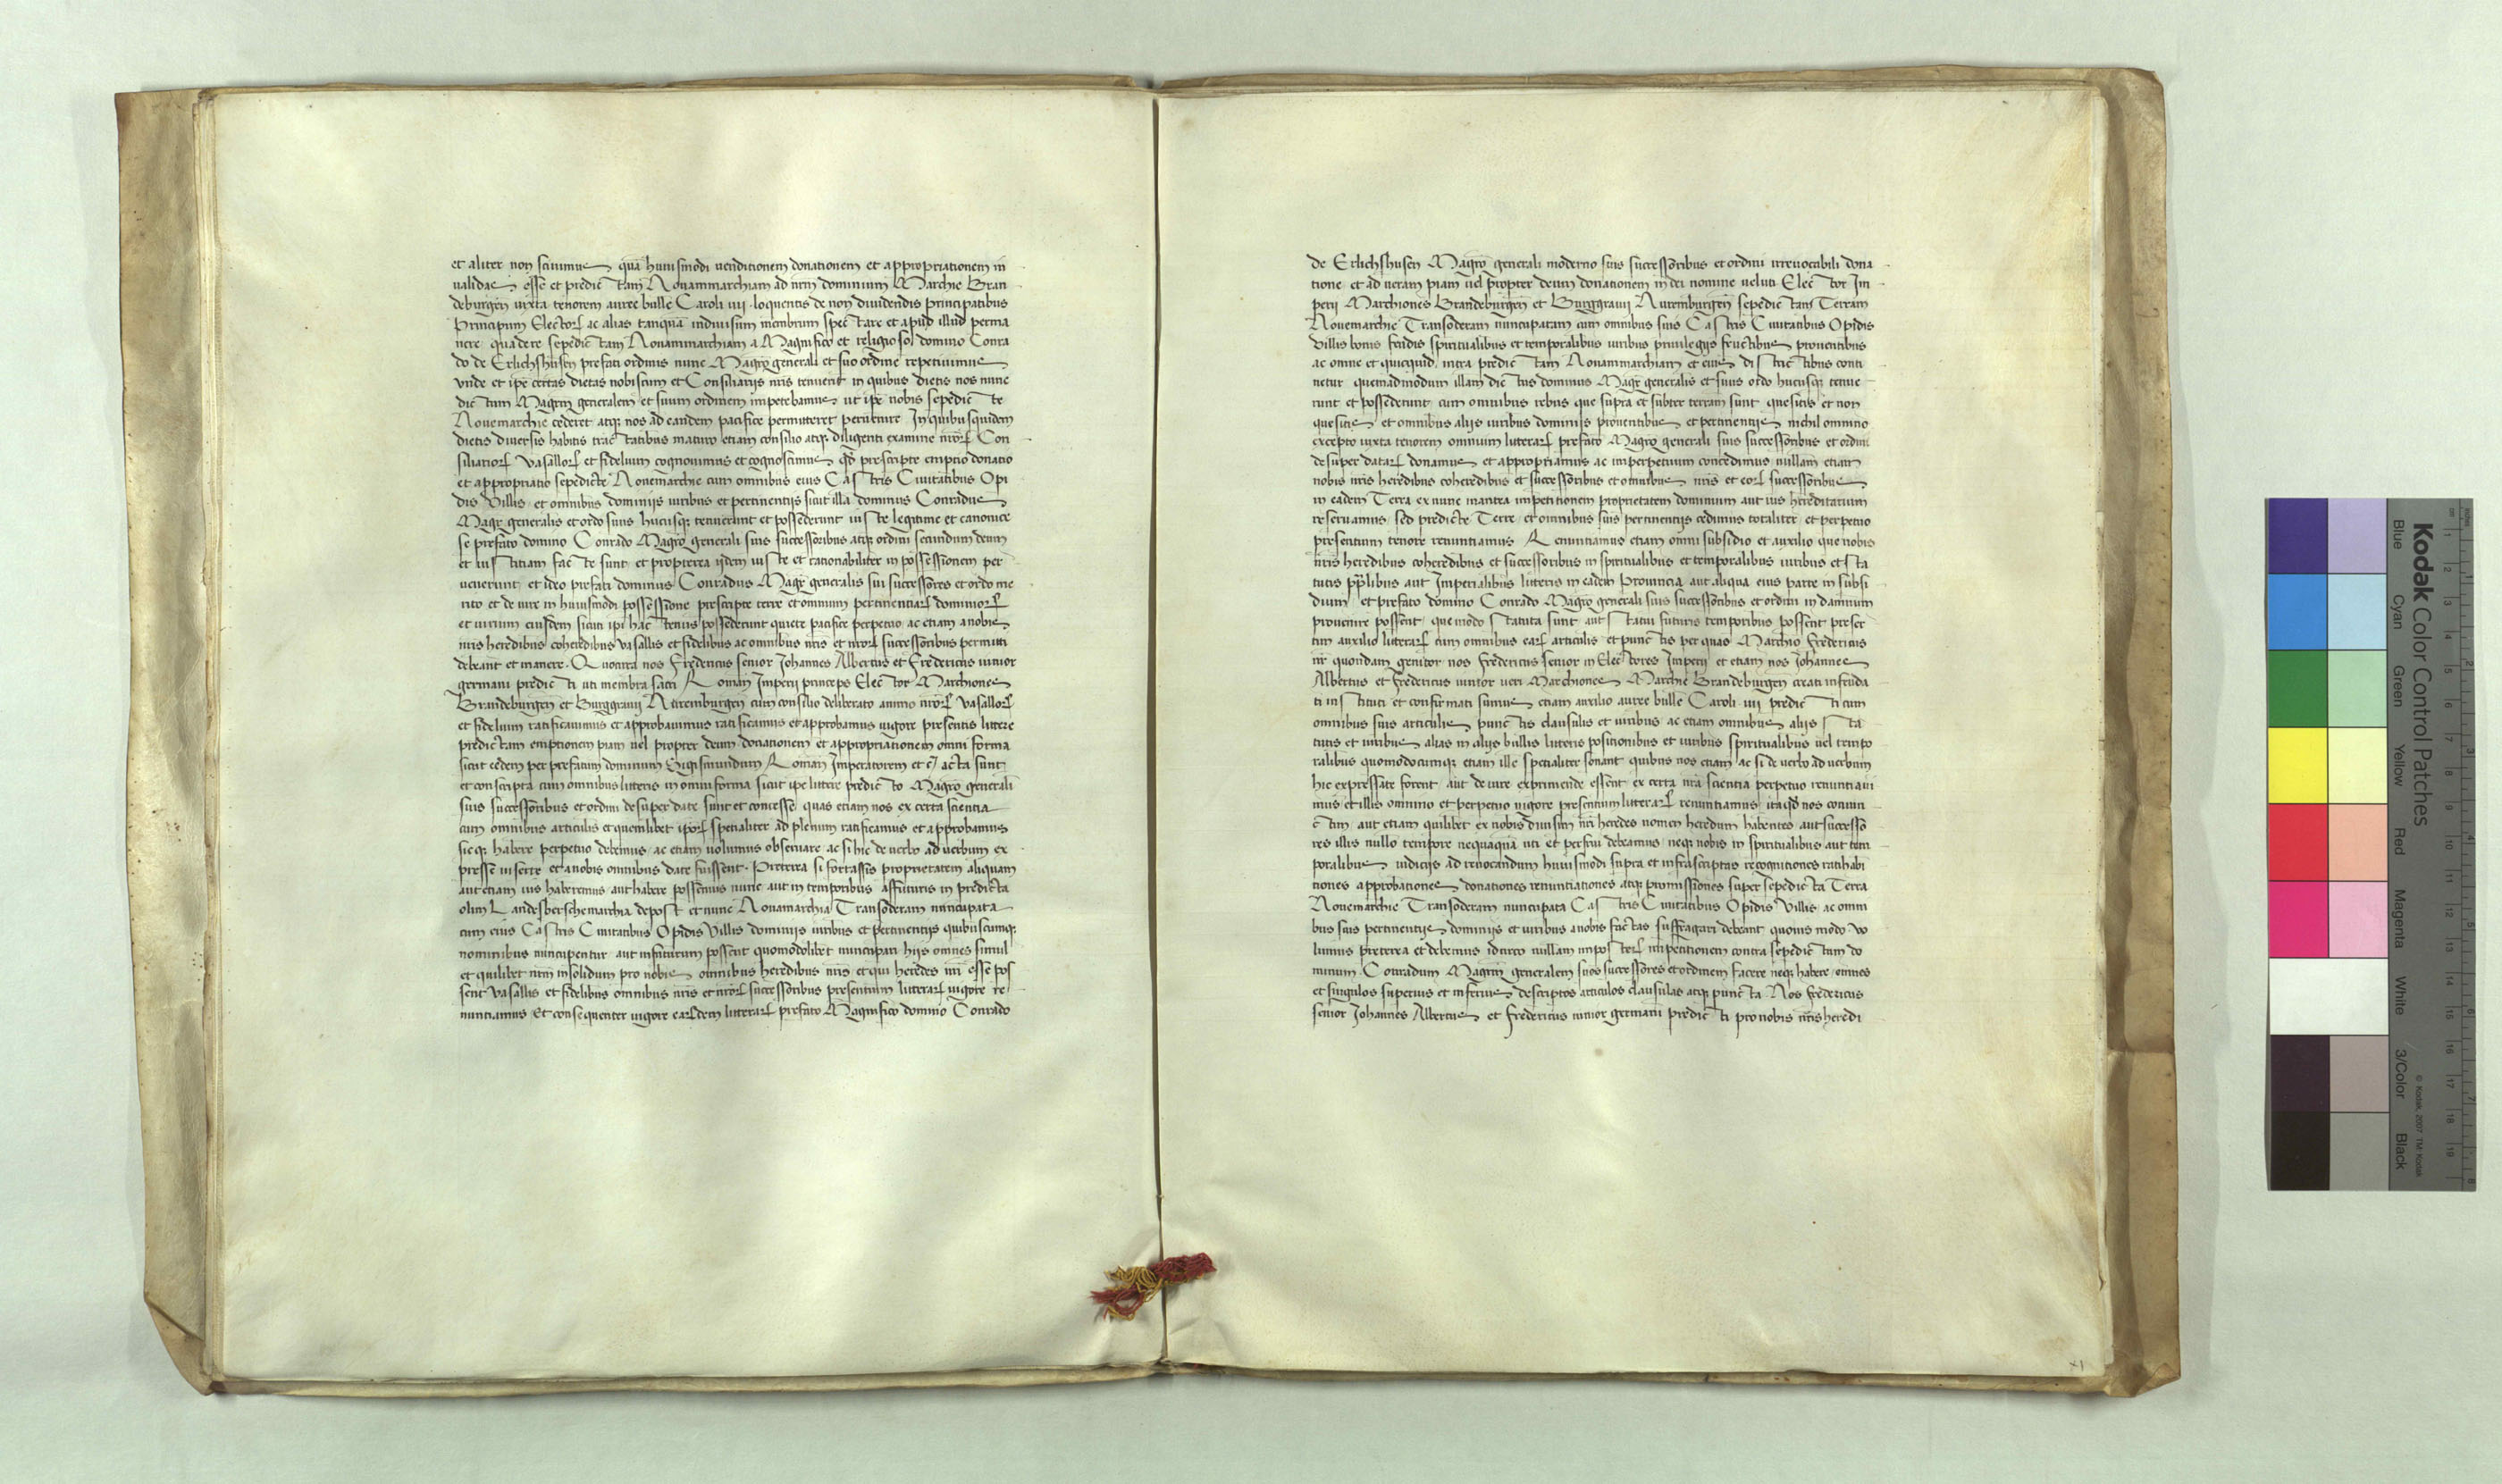 et aliter non scivimus quā huiusmodi venditionem donationem et appropriationem in
validas esse et predictam Novammarchiam ad nrm dominium Marchie Bran
deburgen̄ iuxta tenorem auree bulle Caroli iiii loquentis de non dividendis principatibus
Principum Electorꝝ ac alias tanquā indivisum membrum spectare et apud illud perma
nere quadere sepedictam Novammarchiam a Magnifico et religioso domino Conra
do de Erlichshusen prefati ordinis nunc Magr̄o generali et suo ordine repetivimus
Vnde et ip̄e certas dietas nobiscum et Consiliarijs nr̄is tenuerit in quibus dietis nos nunc
dictum Magrm̄ generalem et suum ordinem impetebamus ut ip̄e nobis sepedicte
Novemarchie cederet atqꝫ nos ad eandem pacifice permitteret pervenire In quibusquidem
dietis diversis habitis tractatibus maturo etiam consilio atqꝫ diligenti examine nr̄orꝝ Con
siliariorꝝ Vasallorꝝ et fidelium cognovimus et cognoscimus qd̄ prescripte emptio donatio
et appropriatio sepedicte Novemarchie cum omnibus eius Castris Civitatibus Opi
dis Villis et omnibus dominijs iuribus et pertinentijs sicut illa dominus Conradus
Magr̄ generalis et ordo suus hucusqꝫ tenuerunt et possederunt iuste legitime et canonice
se prefato domino Conrado Magr̄o generali suis successoribus atqꝫ ordini secundum deum
et iustitiam facte sunt et propterea ijdem iuste et rationabiliter in possessionem per
venerunt et ideo prefati dominus Conradus Magr̄ generalis sui successores et ordo me
rito et de iure in huiusmodi possessione prescripte terre et omnium pertinentiarꝝ dominiorꝝ
et iurium eiusdem sicuti ip̄i hactenus possederunt quiete pacifice perpetuo ac etiam a nobis
nr̄is heredibus coheredibus vasallis et fidelibus ac omnibus nr̄is et nr̄orꝝ successoribus permitti
debeant et manere Quocirca nos Fredericus senior Johannes Albertus et Fredericus iunior
germani predicti uti membra sacri Roman̄ Imperij princeps Elector Marchiones
Brandeburgen̄ et Burggravij Nuremburgen̄ cum consilio deliberato animo nr̄orꝝ vasallorꝝ
et fidelium ratificavimus et approbavimus ratificamus et approbamus vigore presentis littere
predictam emptionem piam vel propter deum donationem et appropriationem omni forma
sicut eedem per prefatum dominum Sigismundum Roman̄ Imperatorem et c̄ acta sunt
et conscripta cum omnibus litteris in omni forma sicut ip̄e littere predicto Magr̄o generali
suis successoribus et ordini desuper date sunt et concesse quas etiam nos ex certa scientia
cum omnibus articulis et quemlibet ip̄orꝝ specialiter ad plenum ratificamus et approbamus
sicqꝫ habere perpetuo debemus ac etiam volumus observare ac si hic de verbo ad verbum ex
presse inserte et a nobis omnibus date fuissent Preterea si fortassis proprietatem aliquam
aut etiam ius haberemus aut habere possemus nunc aut in temporibus affuturis in predicta
olim Landesberschemarchia depost et nunc Novamarchia Transoderam nuncupata
cum eius Castris Civitatibus Opidis Villis dominijs iuribus et pertinentijs quibuscumqꝫ
nominibus nuncupentur aut infuturum possent quomodolibet nuncupari hijs omnes simul
et quilibet nrm̄ insolidum pro nobis omnibus heredibus nr̄is et qui heredes nr̄i esse pos
sent vasallis et fidelibus omnibus nr̄is et nr̄orꝝ successoribus presentium litterarꝝ vigore re
nuntiamus Et consequenter vigore earꝝdem litterarꝝ prefato Magnifico domino Conrado
de Erlichshusen Magr̄o generali moderno suis successoribus et ordini irrevocabili dona
tione et ad veram piam vel propter deum donationem in dei nomine veluti Elector Im
perij Marchiones Brandeburgen̄ et Burggravij Nuremburgen̄ sepedictam Terram
Novemarchie Transoderam nuncupatam cum omnibus suis Castris Civitatibus Opidis
Villis bonis feudis spiritualibus et temporalibus iuribus privilegijs fructibus proventibus
ac omne et quicquid intra predictam Novammarchiam et eius districtibus conti
netur quemadmodum illam dictus dominus Magr̄ generalis et suus ordo hucusqꝫ tenue
runt et possederunt cum omnibus rebus que supra et subter terram sunt quesitis et non
quesitis et omnibus alijs iuribus dominijs proventibus et pertinentijs nichil omnino
excepto iuxta tenorem omnium litterarꝝ prefato Magr̄o generali suis successoribus et ordini
desuper datarꝝ donamus et appropriamus ac imperpetuum concedimus nullam etiam
nobis nr̄is heredibus coheredibus et successoribus et omnibus nr̄is et eorꝝ successoribus
in eadem Terra ex nunc inantea impetitionem proprietatem dominium aut ius hereditarium
reservamus sed predicte Terre et omnibus suis pertinentijs cedimus totaliter et perpetuo
presentium tenore renuntiamus Renuntiamus etiam omni subsidio et auxilio que nobis
nr̄is heredibus coheredibus et successoribus in spiritualibus et temporalibus iuribus et sta
tutis pp̄libus aut Imperialibus litteris in eadem Provincia aut aliqua eius parte in subsi
dium et prefato domino Conrado Magr̄o generali suis successoribus et ordini in damnum
provenire possent que modo statuta sunt aut statui futuris temporibus possent preser
tim auxilio litterarꝝ cum omnibus earꝝ articulis et punctis per quas Marchio Fredericus
nr̄ quondam genitor nos Fredericus senior in Electores Imperij et etiam nos Johannes
Albertus et Fredericus iunior veri Marchiones Marchie Brandeburgen̄ creati infeuda
ti instituti et confirmati sumus etiam auxilio auree bulle Caroli iiii predicti cum
omnibus suis articulis punctis clausulis et iuribus ac etiam omnibus alijs sta
tutis et iuribus alias in alijs bullis litteris positionibus et iuribus spiritualibus vel tempo
ralibus quomodocumqꝫ etiam ille specialiter sonant quibus nos etiam ac si de verbo ad verbum
hic expressate forent aut de iure exprimende essent ex certa nr̄a scientia perpetuo renuntiavi
mus et illis omnino et perpetuo vigore presentium litterarꝝ renuntiamus itaqd̄ nos coniun
ctim aut etiam quilibet ex nobis divisim nr̄i heredes nomen heredum habentes aut successo
res illis nullo tempore nequaquā uti et perfrui debeamus neqꝫ nobis in spiritualibus aut tem
poralibus iudicijs ad revocandum huiusmodi supra et infrascriptas recognitiones ratihabi
tiones approbationes donationes renuntiationes atqꝫ promissiones super sepedicta Terra
Novemarchie Transoderam nuncupata Castris Civitatibus Opidis Villis ac omni
bus suis pertinentijs dominijs et iuribus a nobis factas suffragari debeant quovis modo Vo
lumus preterea et debemus idcirco nullam imposterꝝ impetitionem contra sepedictum do
minum Conradum Magrm̄ generalem suos successores et ordinem facere neqꝫ habere omnes
et singulos superius et inferius descriptos articulos clausulas atqꝫ puncta Nos Fredericus
senior Johannes Albertus et Fredericus iunior germani predicti pro nobis nr̄is heredi
XI
Kodak Color Control Patches
© Kodak, 2007 TM: Kodak
Blue Cyan Green Yellow Red Magenta White 3/Color Black